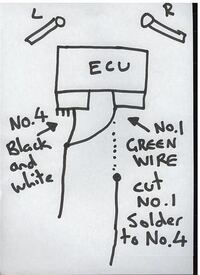 L
R
ECU
No.4
Black
and
white
No.1
GREEN
WIRE
cut
No.1
Solder
to No.4